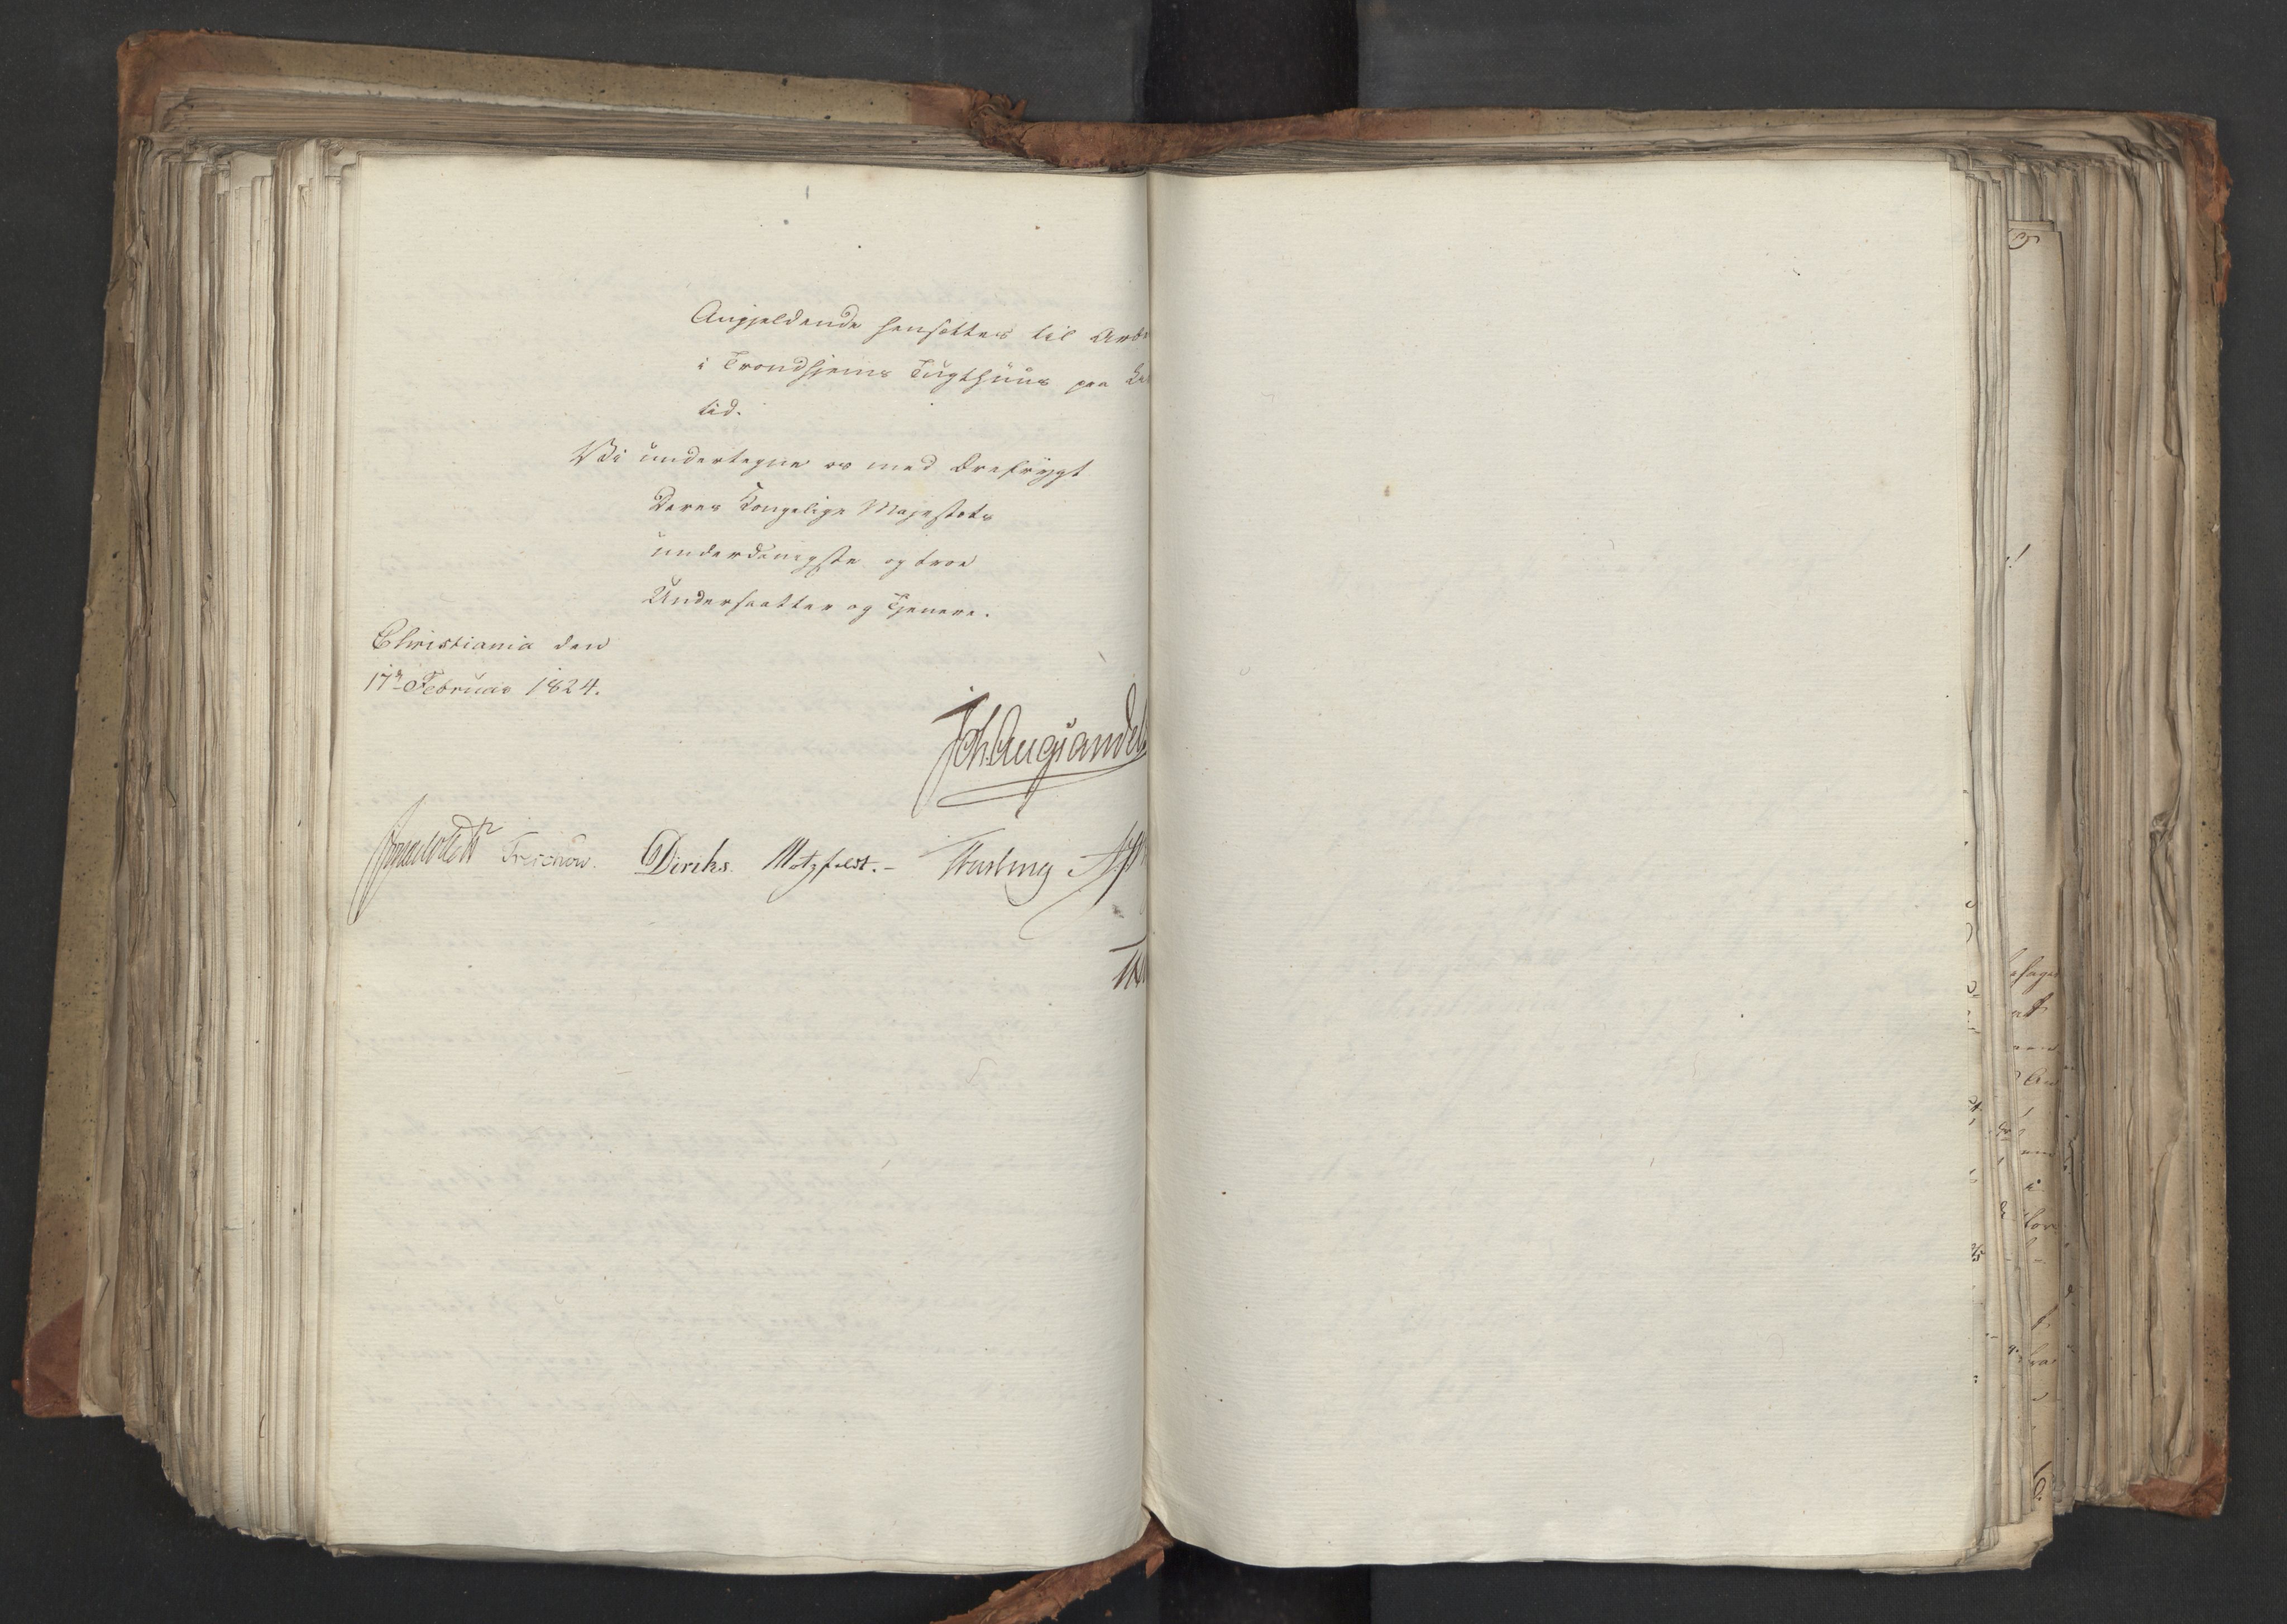 Angjeldende hensættes til Arb
i Trondhjems Tugthuus paa
tid.
Vi undertegne os med Ærefrygt
Deres Kongelige Majestæts
underdanigste og troe
Undersaatter og Tjenere.
Christiania den
17de Februar 1824.
Joh. Aug. Sandel
Sommerhielm Treschow. Diriks. Motzfeldt.-